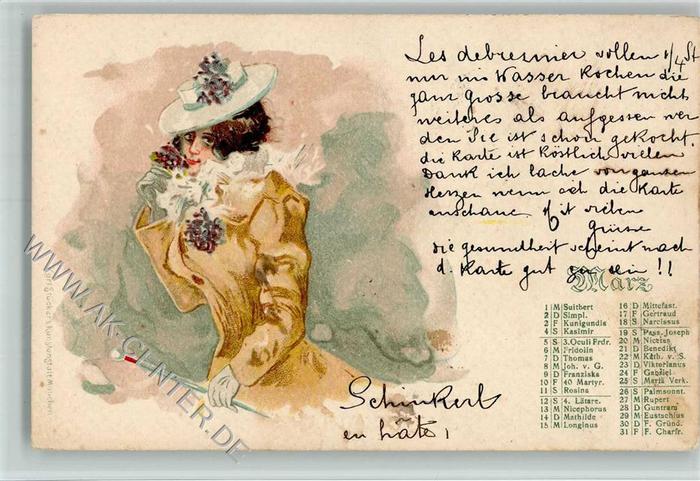 Les debresinier vollen 1/4 St
nur ins Wasser Kochen die
ganz Grosse braucht nicht
weiteres als aufgessen wer
den Sie ist schon gekocht.
die Karte ist Köstlich vielen
Dank ich lache von ganzen
Herzen wenn ich die Karte
anschaue. Mit vielen
Grüsse
die gesundheit scheint nach
d. Karte gut zu sein !!
März
1 M Suitbert
2 D Simpl.
3 F Kunigundis
4 S Kasimir
5 S 3. Oculi Frdr.
6 M Fridolin
7 D Thomas
8 M Joh. v. G.
9 D Franziska
10 F 40 Martyr.
11 S Rosina
12 S 4. Lätare.
13 M Nicephorus
14 D Mathilde
15 M Longinus
16 D Mittefast.
17 F Gertraud
18 S Narcissus
19 S Pass. Joseph
20 M Nicetas
21 D Benedikt
22 M Kath. v. S.
23 D Viktorianus
24 F Gabriel
25 S Mariä Verk.
26 S Palmsonnt.
27 M Rupert
28 D Guntram
29 M Eustachius
30 D F. Gründ.
31 F F. Charfr.
Schinkerl
en hâte!
Kunstanstalt München
WWW.AK-CENTER.DE